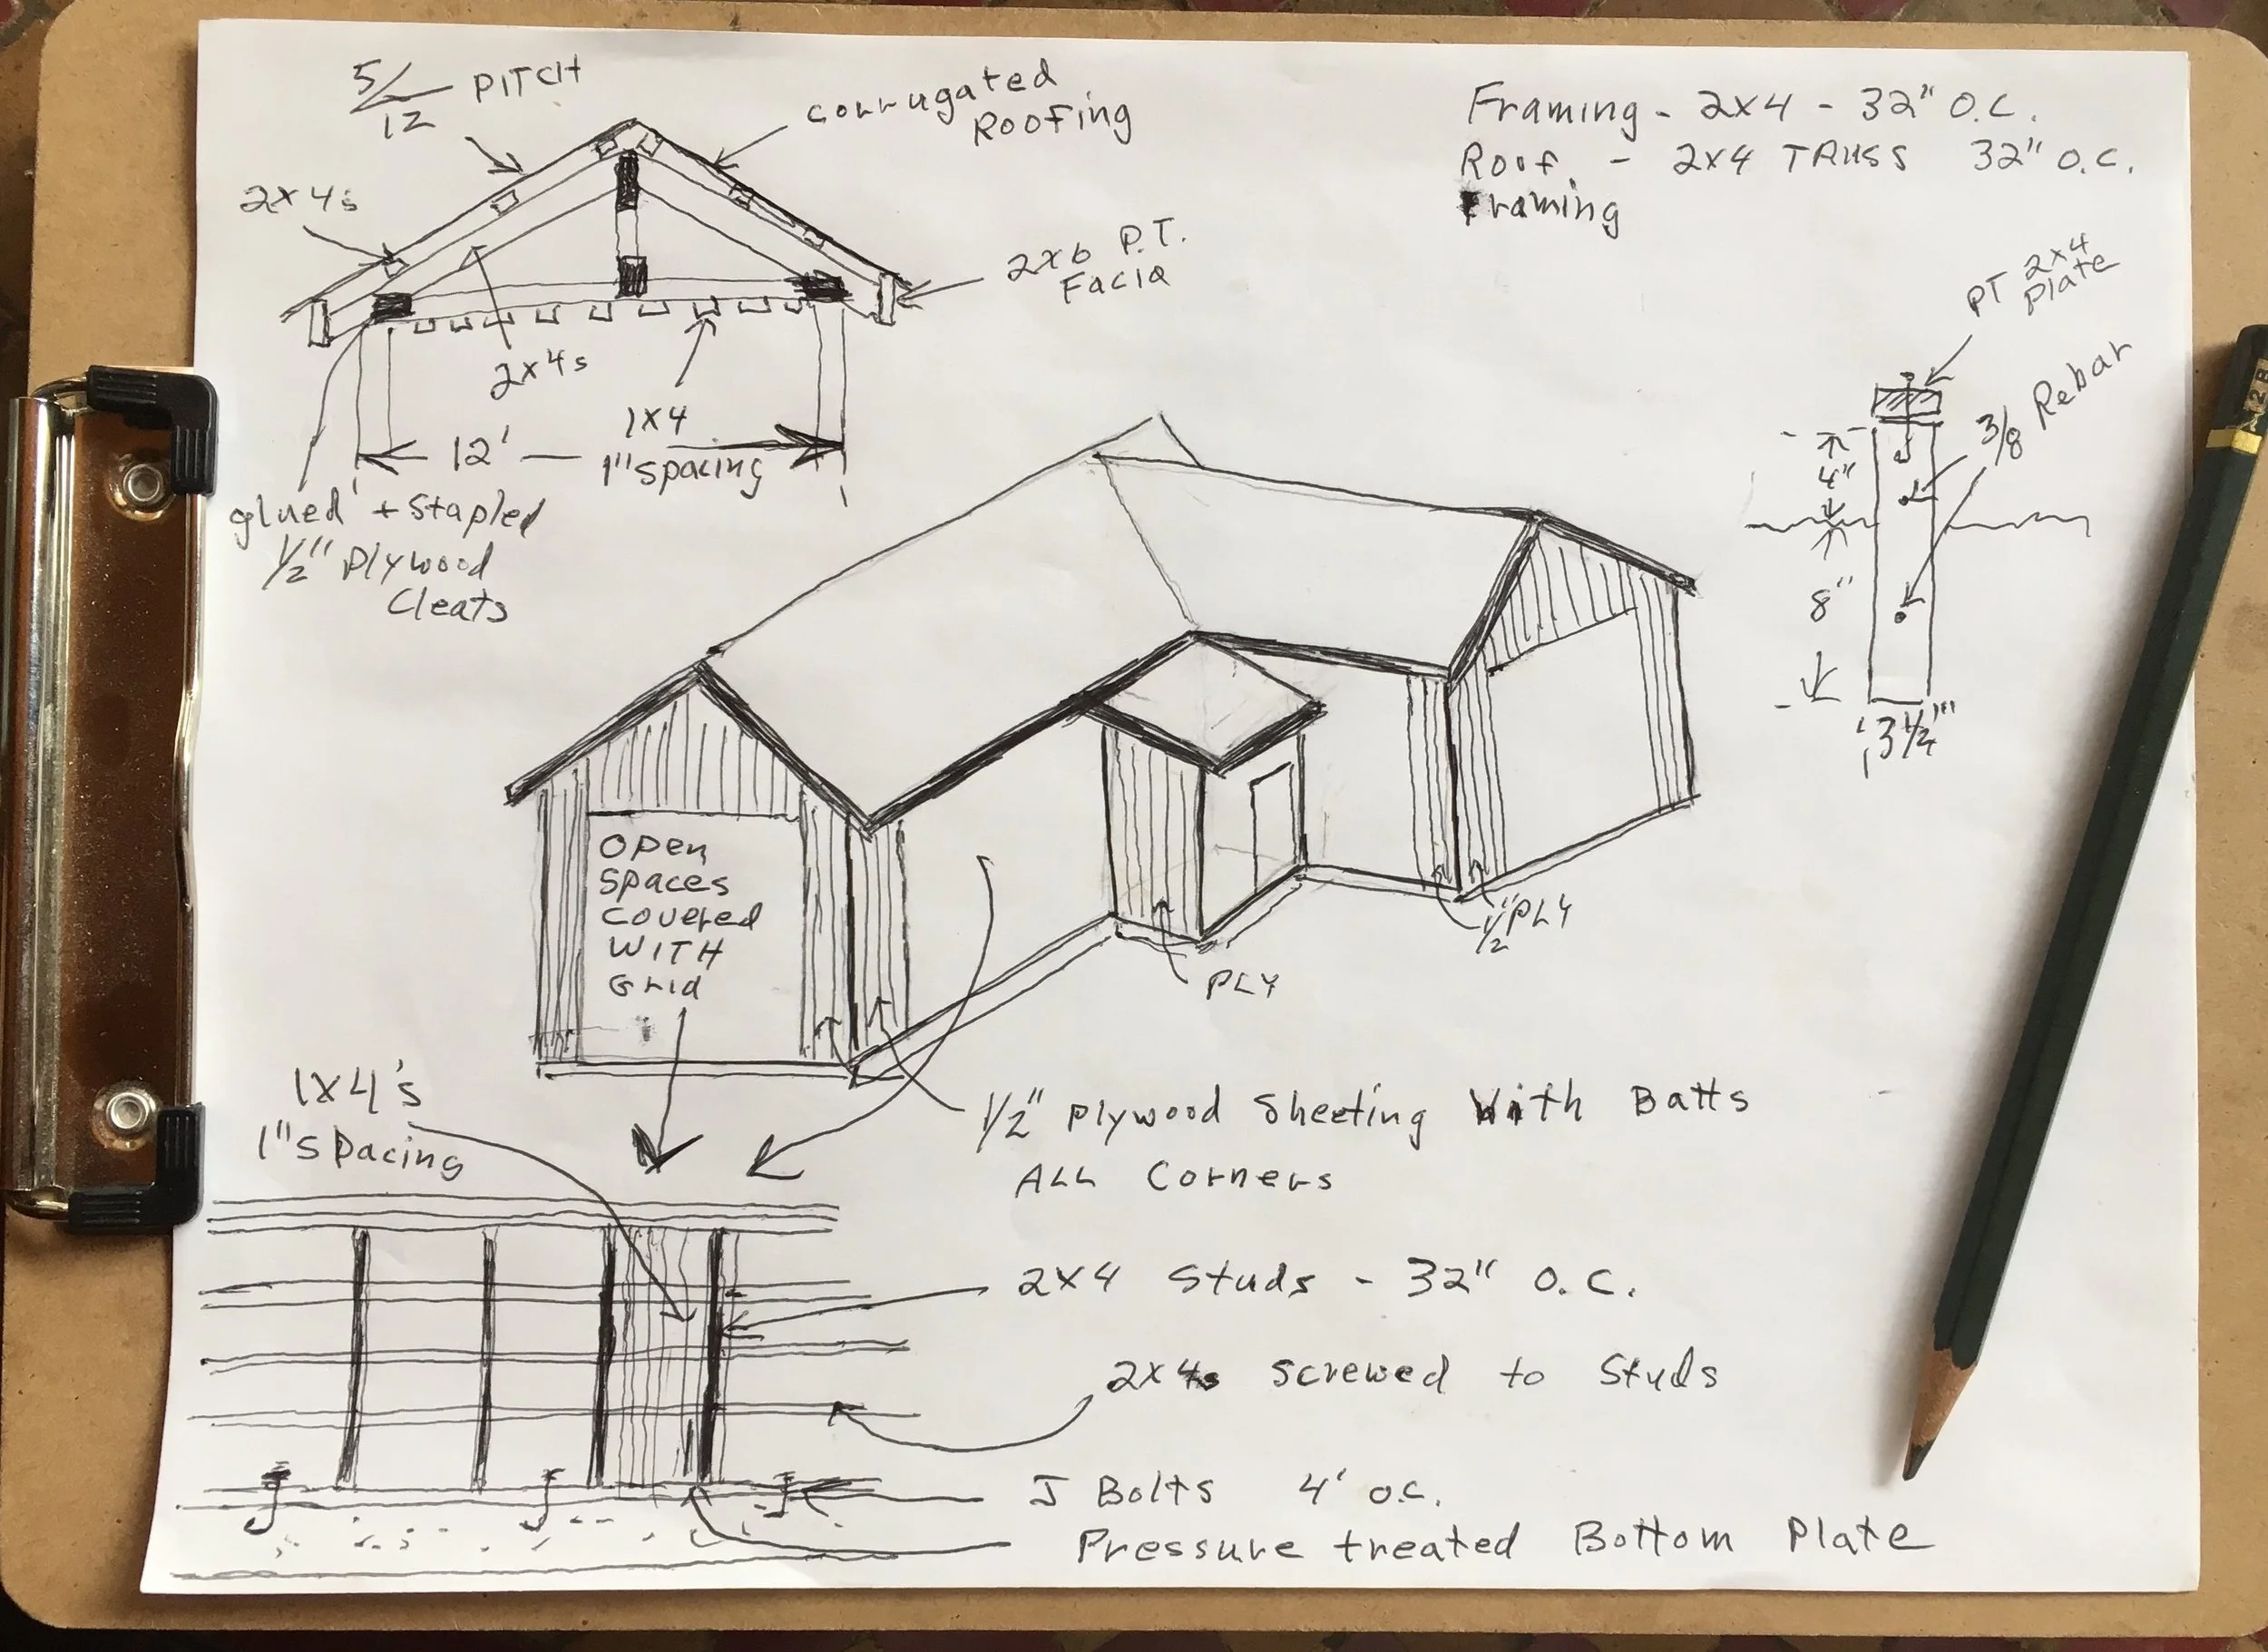 5/12 PITCH
corrugated
Roofing
2x4s
2x6 P.T.
Facia
2x4s
1x4
1" spacing
12'
glued + Stapled
1/2" Plywood
Cleats
Framing - 2x4 - 32" O.C.
Roof - 2x4 TRUSS 32" O.C.
Framing
PT 2x4
Plate
3/8 Rebar
4"
8"
3 1/2"
OPEN
SPACES
COVERED
WITH
Grid
1/2" PLY
PLY
1x4's
1" spacing
1/2" Plywood Sheeting With Batts
ALL Corners
2x4 Studs - 32" O.C.
2x4s screwed to Studs
J Bolts 4' O.C.
Pressure treated Bottom Plate
2B